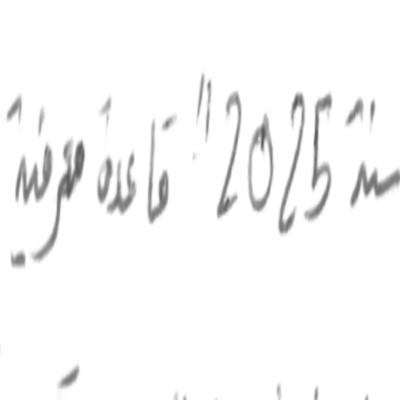 سنة 2025 " قاعدة معرفية